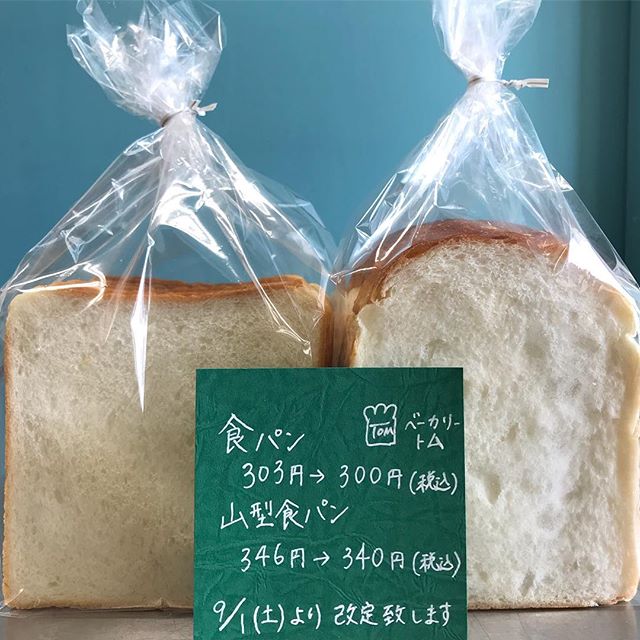 食パン
TOM ベーカリー
トム
303円→300円(税込)
山型食パン
346円→340円(税込)
9/1(土)より改定致します